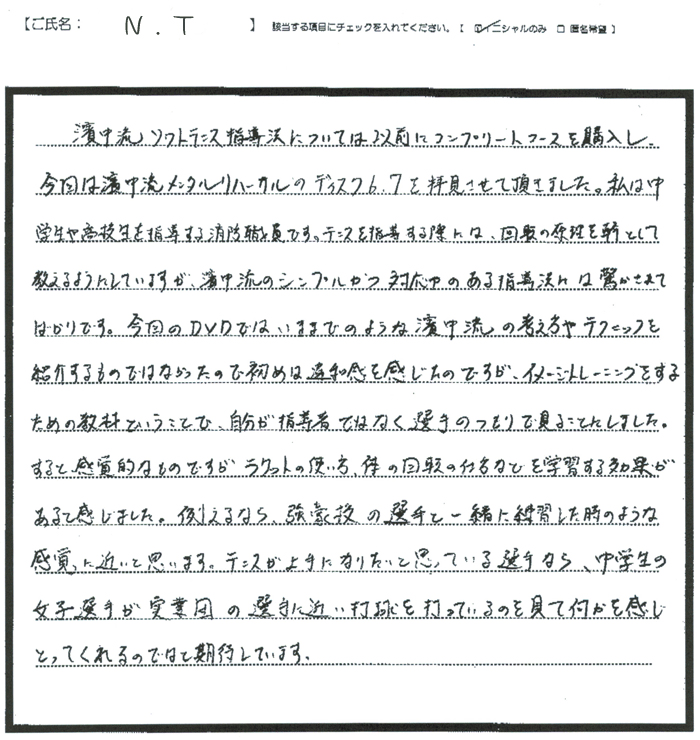 【ご氏名： N.T 】 該当する項目にチェックを入れてください。【 ☑イニシャルのみ □ 匿名希望 】
濱中流ソフトテニス指導法については以前にコンプリートコースを購入し、
今回は濱中流メンタルリハーサルのディスク6、7を拝見させて頂きました。私は中
学生や高校生を指導する消防職員です。テニスを指導する際には、回転の原理を軸として
教えるようにしていますが、濱中流のシンプルかつ対応力のある指導法には驚かされて
ばかりです。今回のDVDではいままでのような濱中流の考え方やテクニックを
紹介するものではなかったので初めは違和感を感じたのですが、イメージトレーニングをする
ための教材ということで、自分が指導者ではなく選手のつもりで見ることにしました。
すると感覚的なものですがラケットの使い方、体の回転の仕方などを学習する効果が
あると感じました。例えるなら、強豪校の選手と一緒に練習した時のような
感覚に近いと思います。テニスが上手になりたいと思っている選手なら、中学生の
女子選手が実業団の選手に近い打球を打っているのを見て何かを感じ
とってくれるのではと期待しています。